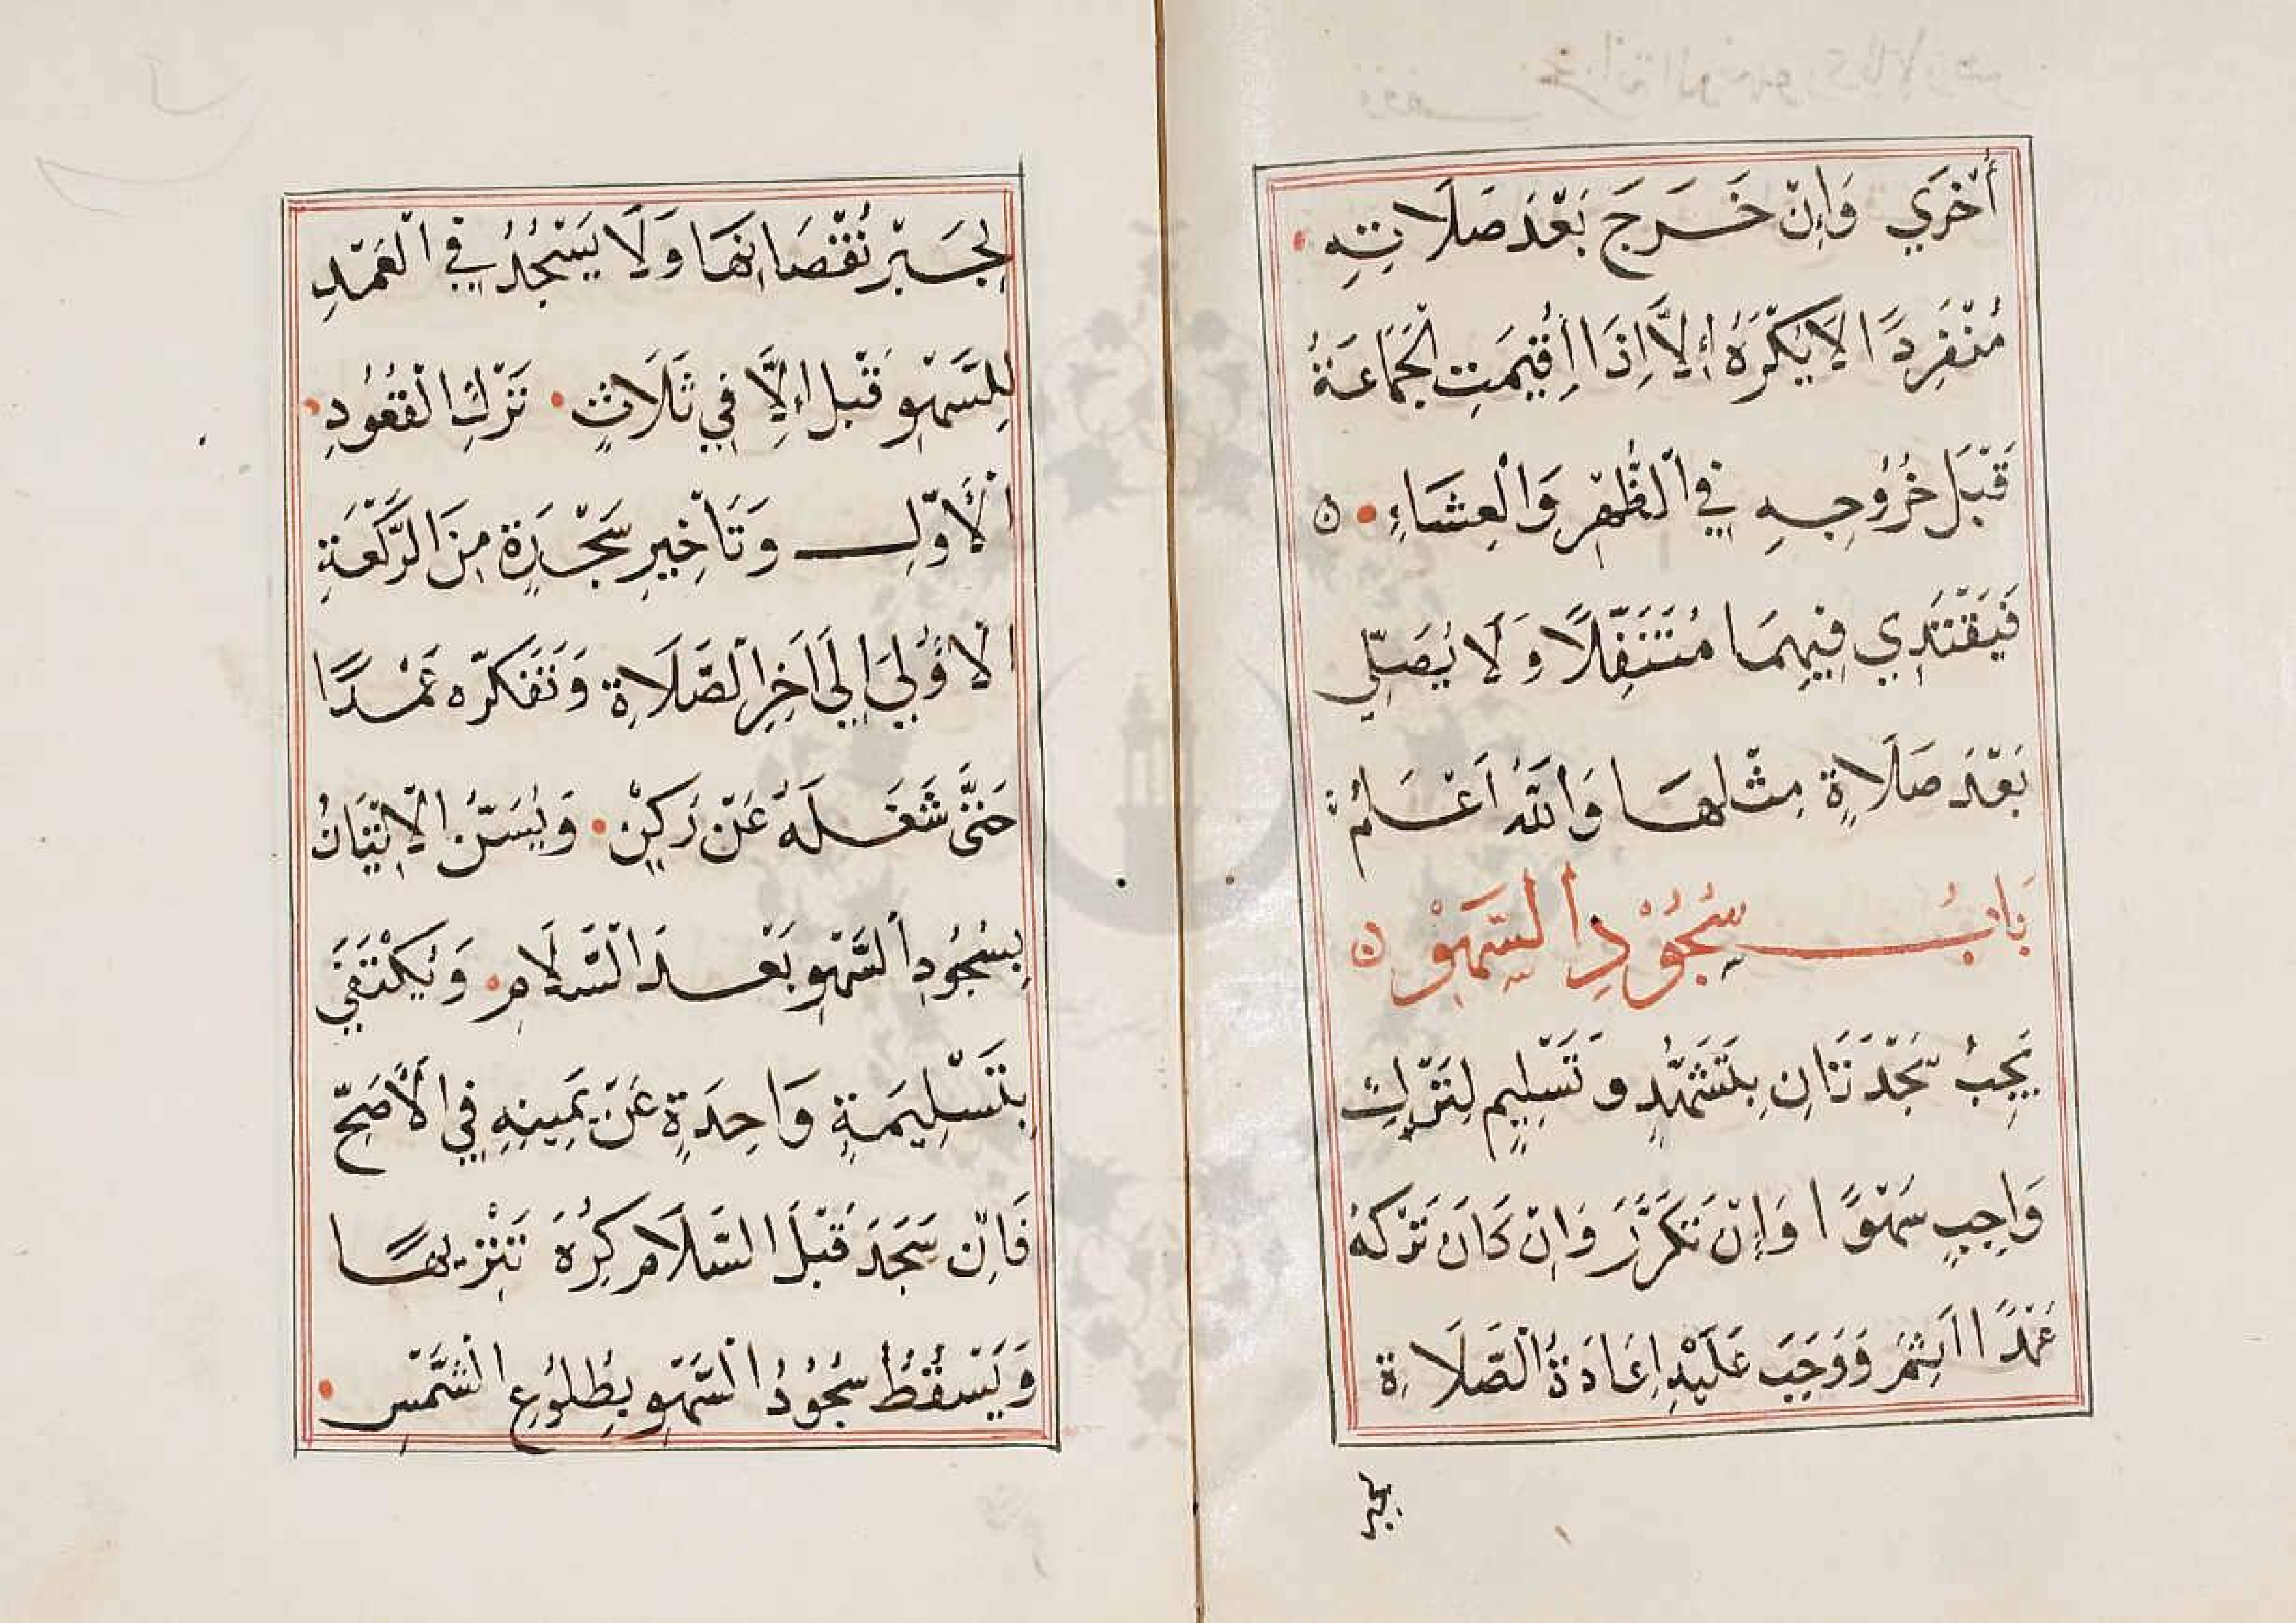 أُخْرَي وَإِنْ خَرَجَ بَعْدَ صَلَاتِهِ
مُنْفَرِدًا لَا يُكْرَهُ إِلَّا إِذَا أُقِيمَتِ الْجَمَاعَةُ
قَبْلَ خُرُوجِهِ فِي الْظُّهْرِ وَالْعِشَاءِ ه
فَيَقْتَدِي فِيهِمَا مُتَنَفِّلًا وَلَا يُصَلِّي
بَعْدَ صَلَاةٍ مِثْلِهَا وَاللّٰهُ أَعْلَمُ
بَابُ سُجُوْدِ السَّهْوِ ه
يَجِبُ سَجْدَتَانِ بِتَشَهُّدٍ وَتَسْلِيمٍ لِتَرْكِ
وَاجِبٍ سَهْوًا وَإِنْ تَكَرَّرَ وَاِنْ كَانَ تَرْكُهُ
عَمْدًا اَثِمَ وَوَجَبَ عَلَيْهِ اِعَادَةُ الْصَّلَاةِ
لجبر
لِجَبْرِ نُقْصَانِهَا وَلَا يَسْجُدُ فِي الْعَمْدِ
لِلسَّهْوِ قْبل اِلَّا فِي ثَلَاثٍ تَرْكِ الْقُعُودِ
الْأَوَّلِ وَتَأخِيرِ سَجْدَةٍ مِنَ الرَّكْعَةِ
الْاُوْلَي اِلَي اَخِرِ الْصَّلَاةِ وَتَفَكُّرِهِ عَمْدًا
حَتَّى شَغَلَهُ عَنْ رَكِيْنٍ وَيُسَنُّ الْاِتْيَانُ
بِسُجُودِ السَّهْوِ بَعْدَ الْسَّلَامِ وَيُكْتَفَيَ
بِتَسْلِيمَةٍ وَاحِدَةٍ عَنْ يَمِينِهِ فِي الْأَصَحِّ
فَاِنْ سَجَدَ قَبْلَ السَّلَامِ كُرِهَ تَنْزِيهًا
وَيَسْقُطُ سُجُوُدُ الْسَّهْوِ بِطُلُوُعِ الشَّمْسِ